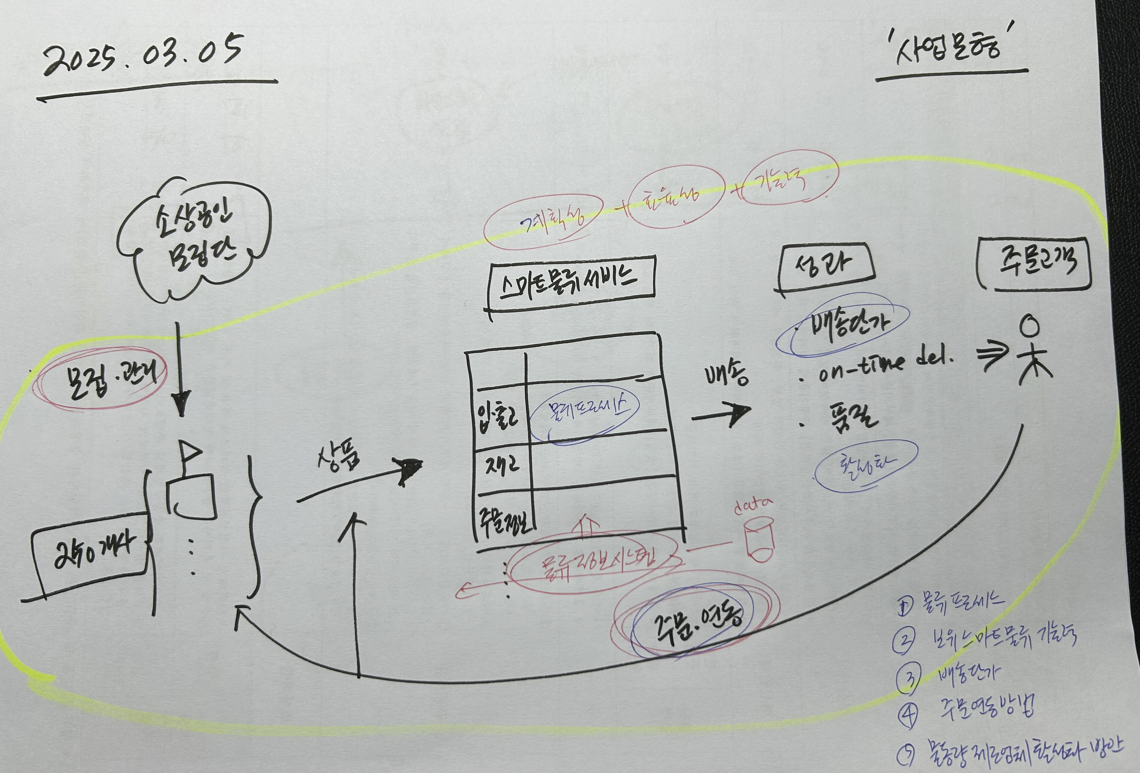 2025.03.05
'사업모형'
소상공인
모집단
계획성 + 효율성 + 기능력
스마트물류서비스
성과
주문고객
모집·관리
· 배송단가
· on-time del.
· 품질
활성화
배송
상품
입·출고
물류프로세스
재고
주문정보
250개사
data
물류정보시스템
주문·연동
① 물류프로세스
② 보유스마트물류 기능력
③ 배송단가
④ 주문연동방법
⑤ 물동량 제조업체 활성화 방안